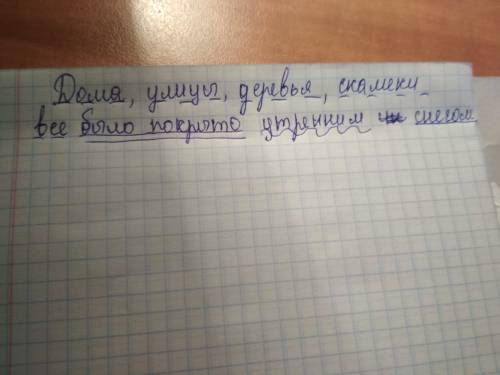 Дома, улицы, деревья, скамеки
все было покрыто утренним снегом